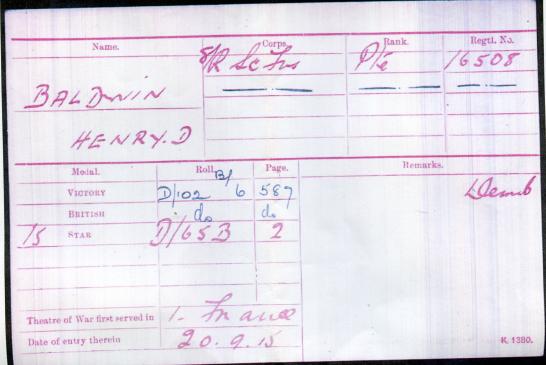 Name. Corps. Rank. Regtl. No.
8/R Sc Fus Pte 16508
BALDWIN
HENRY. D
Medal. Roll. Page. Remarks.
VICTORY D/102 B/ 6 587 Demob
BRITISH do do
15 STAR D/65B 2
Theatre of War first served in 1. France
Date of entry therein 20.9.15
K. 1380.